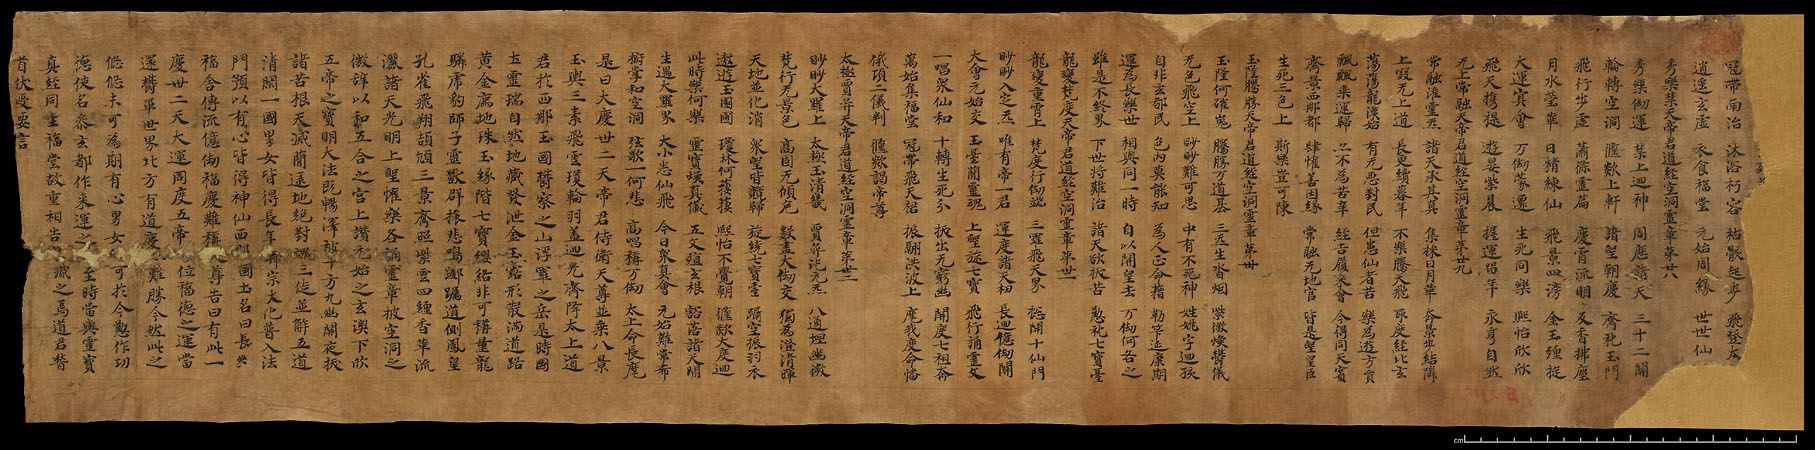 冠帶南治 沐浴朽容 枯骸起步 飛登太
逍遥玄虚 衣食福堂 元始周緣 世世仙
秀樂禁天帝君道經空洞靈章第廿八
秀樂御運 禁上迴神 周應諸天 三十二開
輪轉空洞 偃歘上軒 諸皇朝慶 齊礼玉門
飛行步虚 蕭條靈篇 慶霄流明 反香拂塵
月水瑩華 日精練仙 飛景四滂 金玉纏旋
大運冥會 万劫蒙遷 生死同樂 熙怡欣欣
飛天携提 遊晏紫晨 握運留年 永享自然
无上常融天帝君道經空洞靈章第廿九
常融淮靈炁 諸天承其真 集採日月華 奔景步結隣
上啜无上道 長更續暮年 不樂騰天飛 耶度經比玄
蕩蕩龍漢始 有无悉對民 但患山者苦 樂為遊方賓
飄飄乗運歸 亡不為苦羍 經吉履来會 今得同天賓
齊景西那都 肆懽善因緣 常融无地官 皆是聖皇臣
生死三色上 斯樂豈可陳
玉隆騰勝天帝君道經空洞靈章第卅
玉隆何確嵬 騰勝万道基 三炁生眥烟 紫微煥欝儀
无色飛空上 眇眇難可思 中有不死神 姓姚字迴孩
自非玄都民 色内莫能知 為人正命籍 勒筭送康期
運為長樂世 相與同一時 自以開皇士 万劫何名之
雖是不終界 下世持難治 諸天欲拔苦 慇礼七寳臺
龍變梵度天帝君道經空洞靈章第卅一
龍變重霄上 梵度行劫端 三羅飛天界 揔開十仙門
眇眇入空炁 唯有帝一君 運度諸天和 長迴億劫關
大會元始交 玉臺蘭靈魂 上聖詠七寳 飛行誦靈文
一唱衆仙和 十轉生死分 拔出无窮幽 開度七祖奔
萬始集福堂 冠帶飛天裙 振翮淡波上 庭我度命幡
俄頃二儀判 偃歘謁帝尊
太極賈奔天帝君道經空洞靈章第卅二
眇眇大羅上 太極玉清畿 賈奔治无炁 八道坦幽微
梵行无景色 高固无傾危 數盡大劫交 獨為澄清暉
天地並化消 衆聖皆競歸 旋繞七寳臺 躡空振羽衣
遨遊玉國圃 瓊林何蕿蕿 熙怡不覺朝 偃歘大度迴
此時樂何樂 靈寳煥真儀 五文殖玄根 豁落諸天開
生遇大羅界 大小悉仙飛 今日衆真會 元始難常希
撫掌和空洞 弦歌一何悲 高唱稱万劫 太上命長麾
是日大慶世二天帝君侍衛天尊並乗八景
玉輿三素飛雲瓊輪羽盖迴光齊降太上道
君於西那玉國欝察之山浮羅之岳是時國
土靈瑞自然地藏發泄金玉露形散滿道路
黄金為地珠玉緣階七寳纓絡非可稱量龍
騏席豹師子靈獸群棲悲鳴躑躅道側鳳皇
孔雀飛翔頡頏三景齊照紫雲四纏香華流
灑諸天光明上聖懽樂各誦靈章披空洞之
微詳以和五合之宫上讃元始之玄澳下欣
五帝之寳明大法既暢澤被十方九幽開夜拔
諸苦根天滅蘭逕地絶對魂三徒並解五道
清閑一國男女皆得長年 宗大化普入法
門願以有心皆得神仙西那國土名曰長樂
福舍傳流億劫福慶難稱 尊告曰有此一
慶世二天大運周度五帝 位福德之運當
還欝單世界北方有道慶 難勝今然此之
悠悠未可為期有心男女 可於今懃作功
德使名条玄都作来運之 至時當與靈寳
真經同生福堂故重相告 識之焉道君誓
首伏受要言